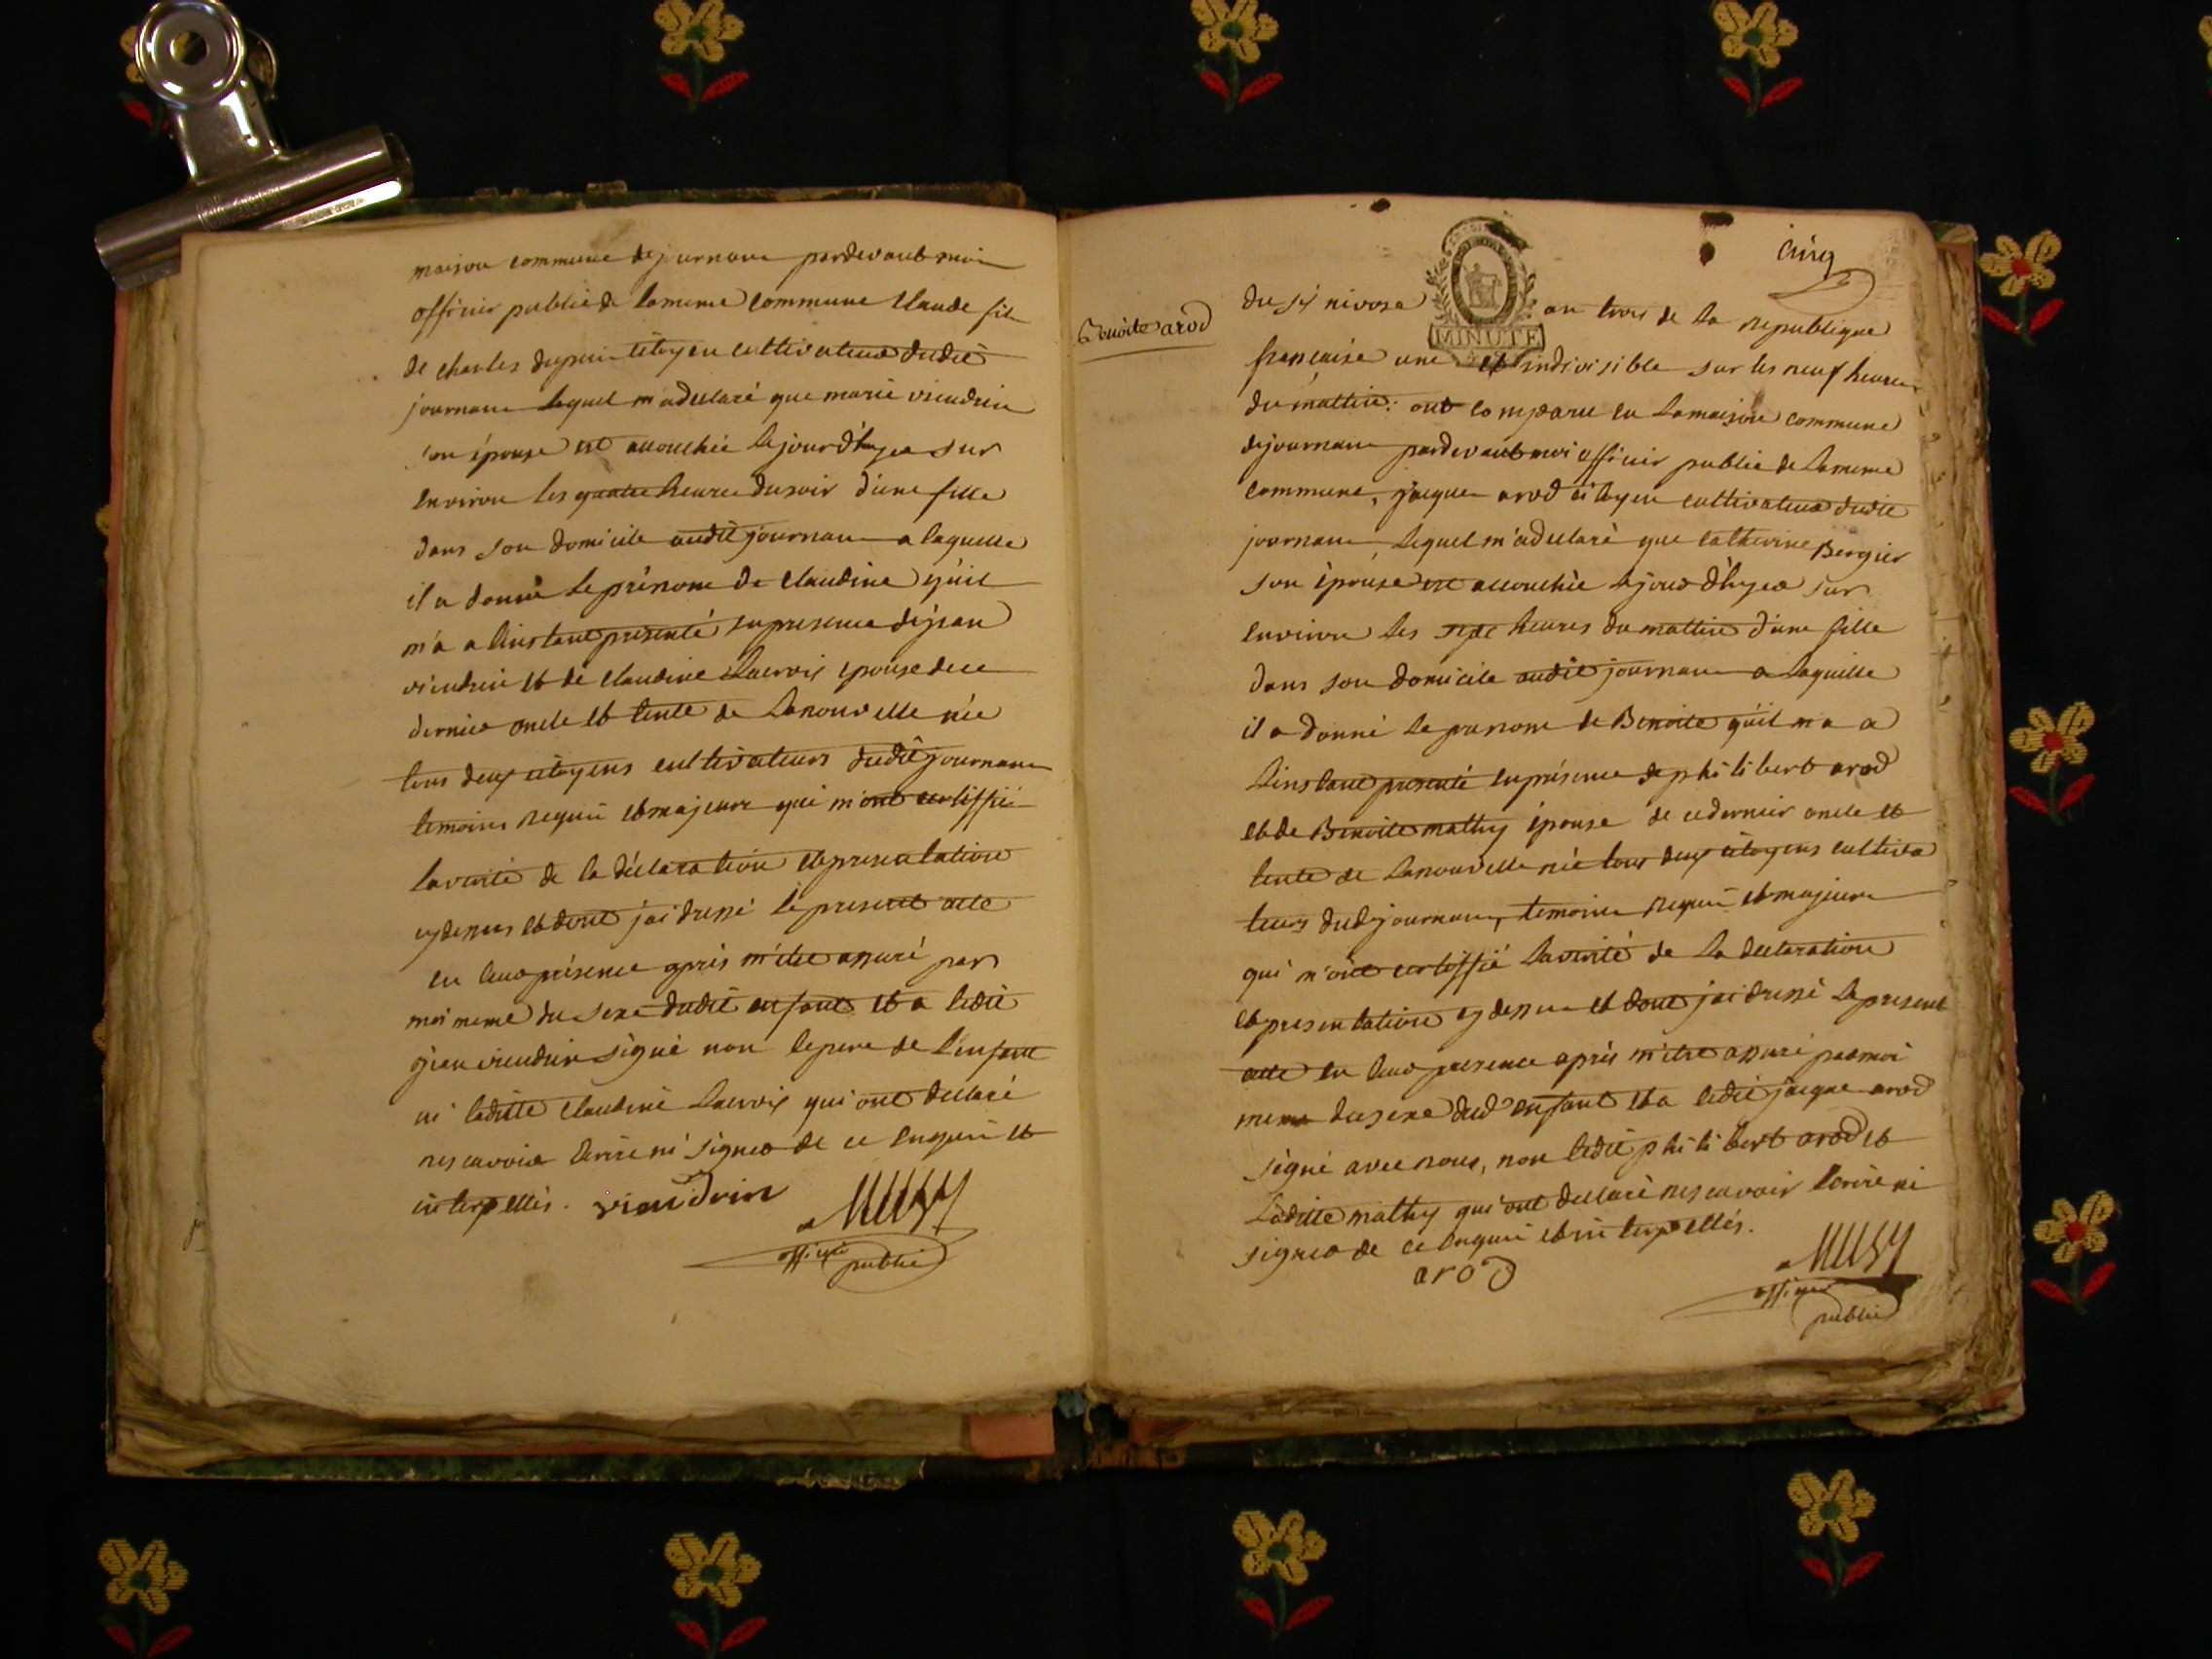 maison commune de journans pardevant moi
officier public de la meme commune Claude fils
de charles dupuis citoyen cultivateur dudit
journans lequel m'a declaré que marie viendrin
son épouse est accouchée le jour d'hyer sur
environ les quatre heures du soir d'une fille
dans son domicile audit journans a laquelle
il a donné le prénom de claudine qu'il
m'a a l'instant presenté en presence de jean
viendrin et de claudine Lacroix epouse de ce
dernier oncle et tente de la nouvelle née
tous deux citoyens cultivateurs dudit journans
temoins requis et majeurs qui m'ont certiffié
la verité de la déclaration et presentation
cy dessus et dont j'ai dressé le present acte
en leur présence après m'etre assuré par
moi meme du sexe dudit enfant et a ledit
jean viendrin signé non le pere de l'enfant
ni laditte claudine Lacroix qui ont declaré
ne scavoir ecrire ni signer de ce enquis et
interpellés. viendrin
officier public
cinq
MINUTE
Benoite arod
du six nivose an trois de la republique
française une et indivisible sur les neuf heures
du mattin: ont comparu en la maison commune
de journans pardevant moi officier public de la meme
commune, jacques arod citoyen cultivateur dudit
journans, lequel m'a declaré que catherine Bergier
son épouse est accouchée le jour d'hyer sur
environ les sept heures du mattin d'une fille
dans son domicile audit journans a laquelle
il a donné le prenom de Benoite qu'il m'a a
l'instant presenté en présence de philibert arod
et de Benoite mathy épouse de ce dernier oncle et
tente de la nouvelle née tous deux citoyens cultiva
teurs dud journans, temoins requis et majeurs
qui m'ont certiffié la verité de la declaration
et presentation cy dessus et dont j'ai dressé le present
acte en leur presence après m'etre assuré par moi
meme du sexe dud enfant et a ledit jacque arod
signé avec nous, non ledit philibert arod et
laditte mathy qui ont declaré ne scavoir ecrire ni
signer de ce enquis et interpellés.
arod
officier
public